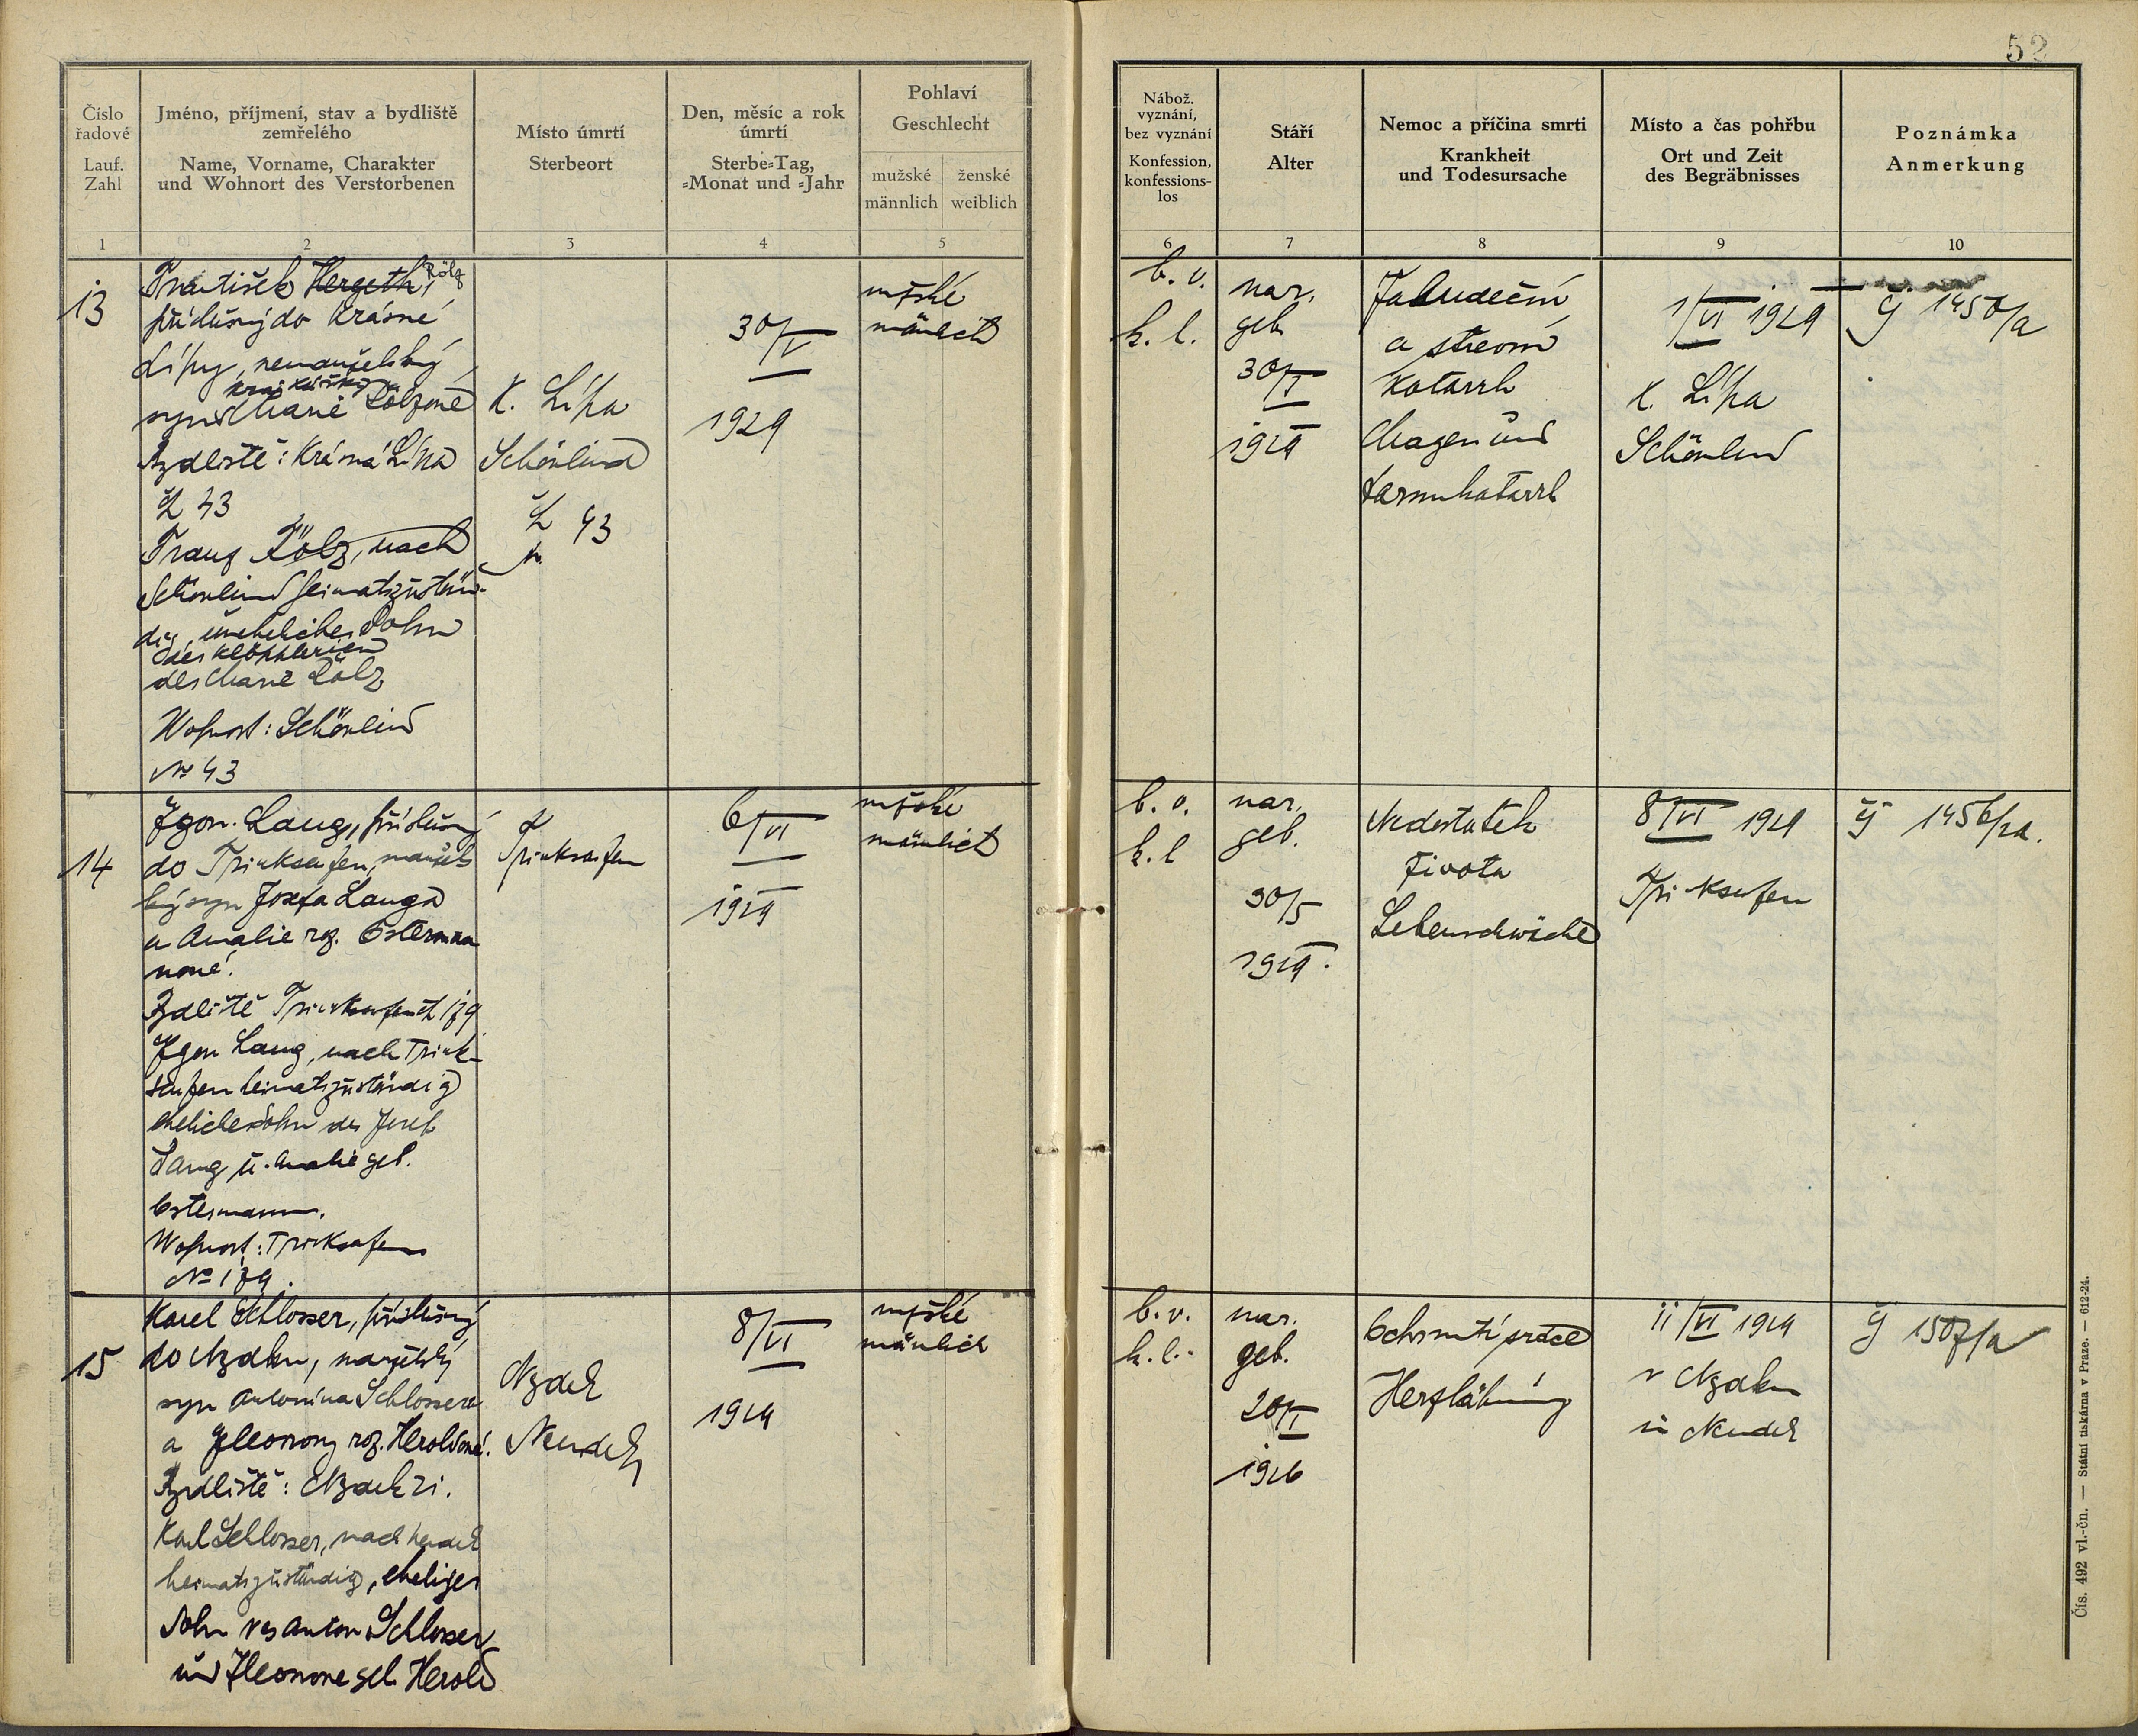 52
Číslo řadové
Lauf. Zahl
Jméno, příjmení, stav a bydliště zemřelého
Name, Vorname, Charakter und Wohnort des Verstorbenen
Místo úmrtí
Sterbeort
Den, měsíc a rok úmrtí
Sterbe-Tag, -Monat und -Jahr
Pohlaví
Geschlecht
mužské
männlich
ženské
weiblich
Nábož. vyznání, bez vyznání
Konfession, konfessions-los
Stáří
Alter
Nemoc a příčina smrti
Krankheit und Todesursache
Místo a čas pohřbu
Ort und Zeit des Begräbnisses
Poznámka
Anmerkung
1 2 3 4 5 6 7 8 9 10
13
František Hergeth,
příslušný do Krásné
Lípy, nemanželský
syn Marie
Bydliště: Krásná Lípa
čl 43
Franz nach
Schönlind heimatszustän-
dig, unehelicher Sohn
der Klöpplerien
des Marie
Wohnort: Schönlind
No 43
K. Lípa
Schönlind
43
30/V
1929
mužské
mänlich
b. v.
k. l.
nar.
geb.
30/I
1929
Žaludeční
a střevní
Katarrh
Magen und
Darmkatarrh
1/VI 1929
K. Lípa
Schönlind
čj 1450/a
14
Lang, příslušný
do Trinkseifen, manžels
ký syn Josefa Langa
a Amalie roz. Osterma
nové.
Bydliště Trinkseifen čl 179
Lang, nach Trink-
seifen heimatszuständig
ehelicher Sohn des Josef
Lang u. Amalie geb.
Ostermann.
Wohnort: Trinkseifen
No 179.
Trinkseifen
6/VI
1929
mužské
mänlich
b. v.
k. l
nar.
geb.
30/5
1929.
Nedostatek
života
Lebenschwäche
8/VI 1929
Trinkseifen
čj 1456/a.
15
Karel Schlosser, příslušný
do Nejdku, manželský
syn Antonína Schlossera
a Eleonory roz. Heroldové.
Bydliště: Nejdek 21.
Karl Schlosser, nach Neudek
heimatszuständig, eheliger
Sohn des Anton Schlosser
und Eleonore geb. Herold
Nejdek
Neudek
8/VI
1929
mužské
mänlich
b. v.
k. l.
nar.
geb.
20/I
1926
Ochrnutí srdce
Herzlähmung
11/VI 1929
v Nejdku
in Neudek
čj 1507/a
Čís. 492 vl.-čn. — Státní tiskárna v Praze. — 612-24.